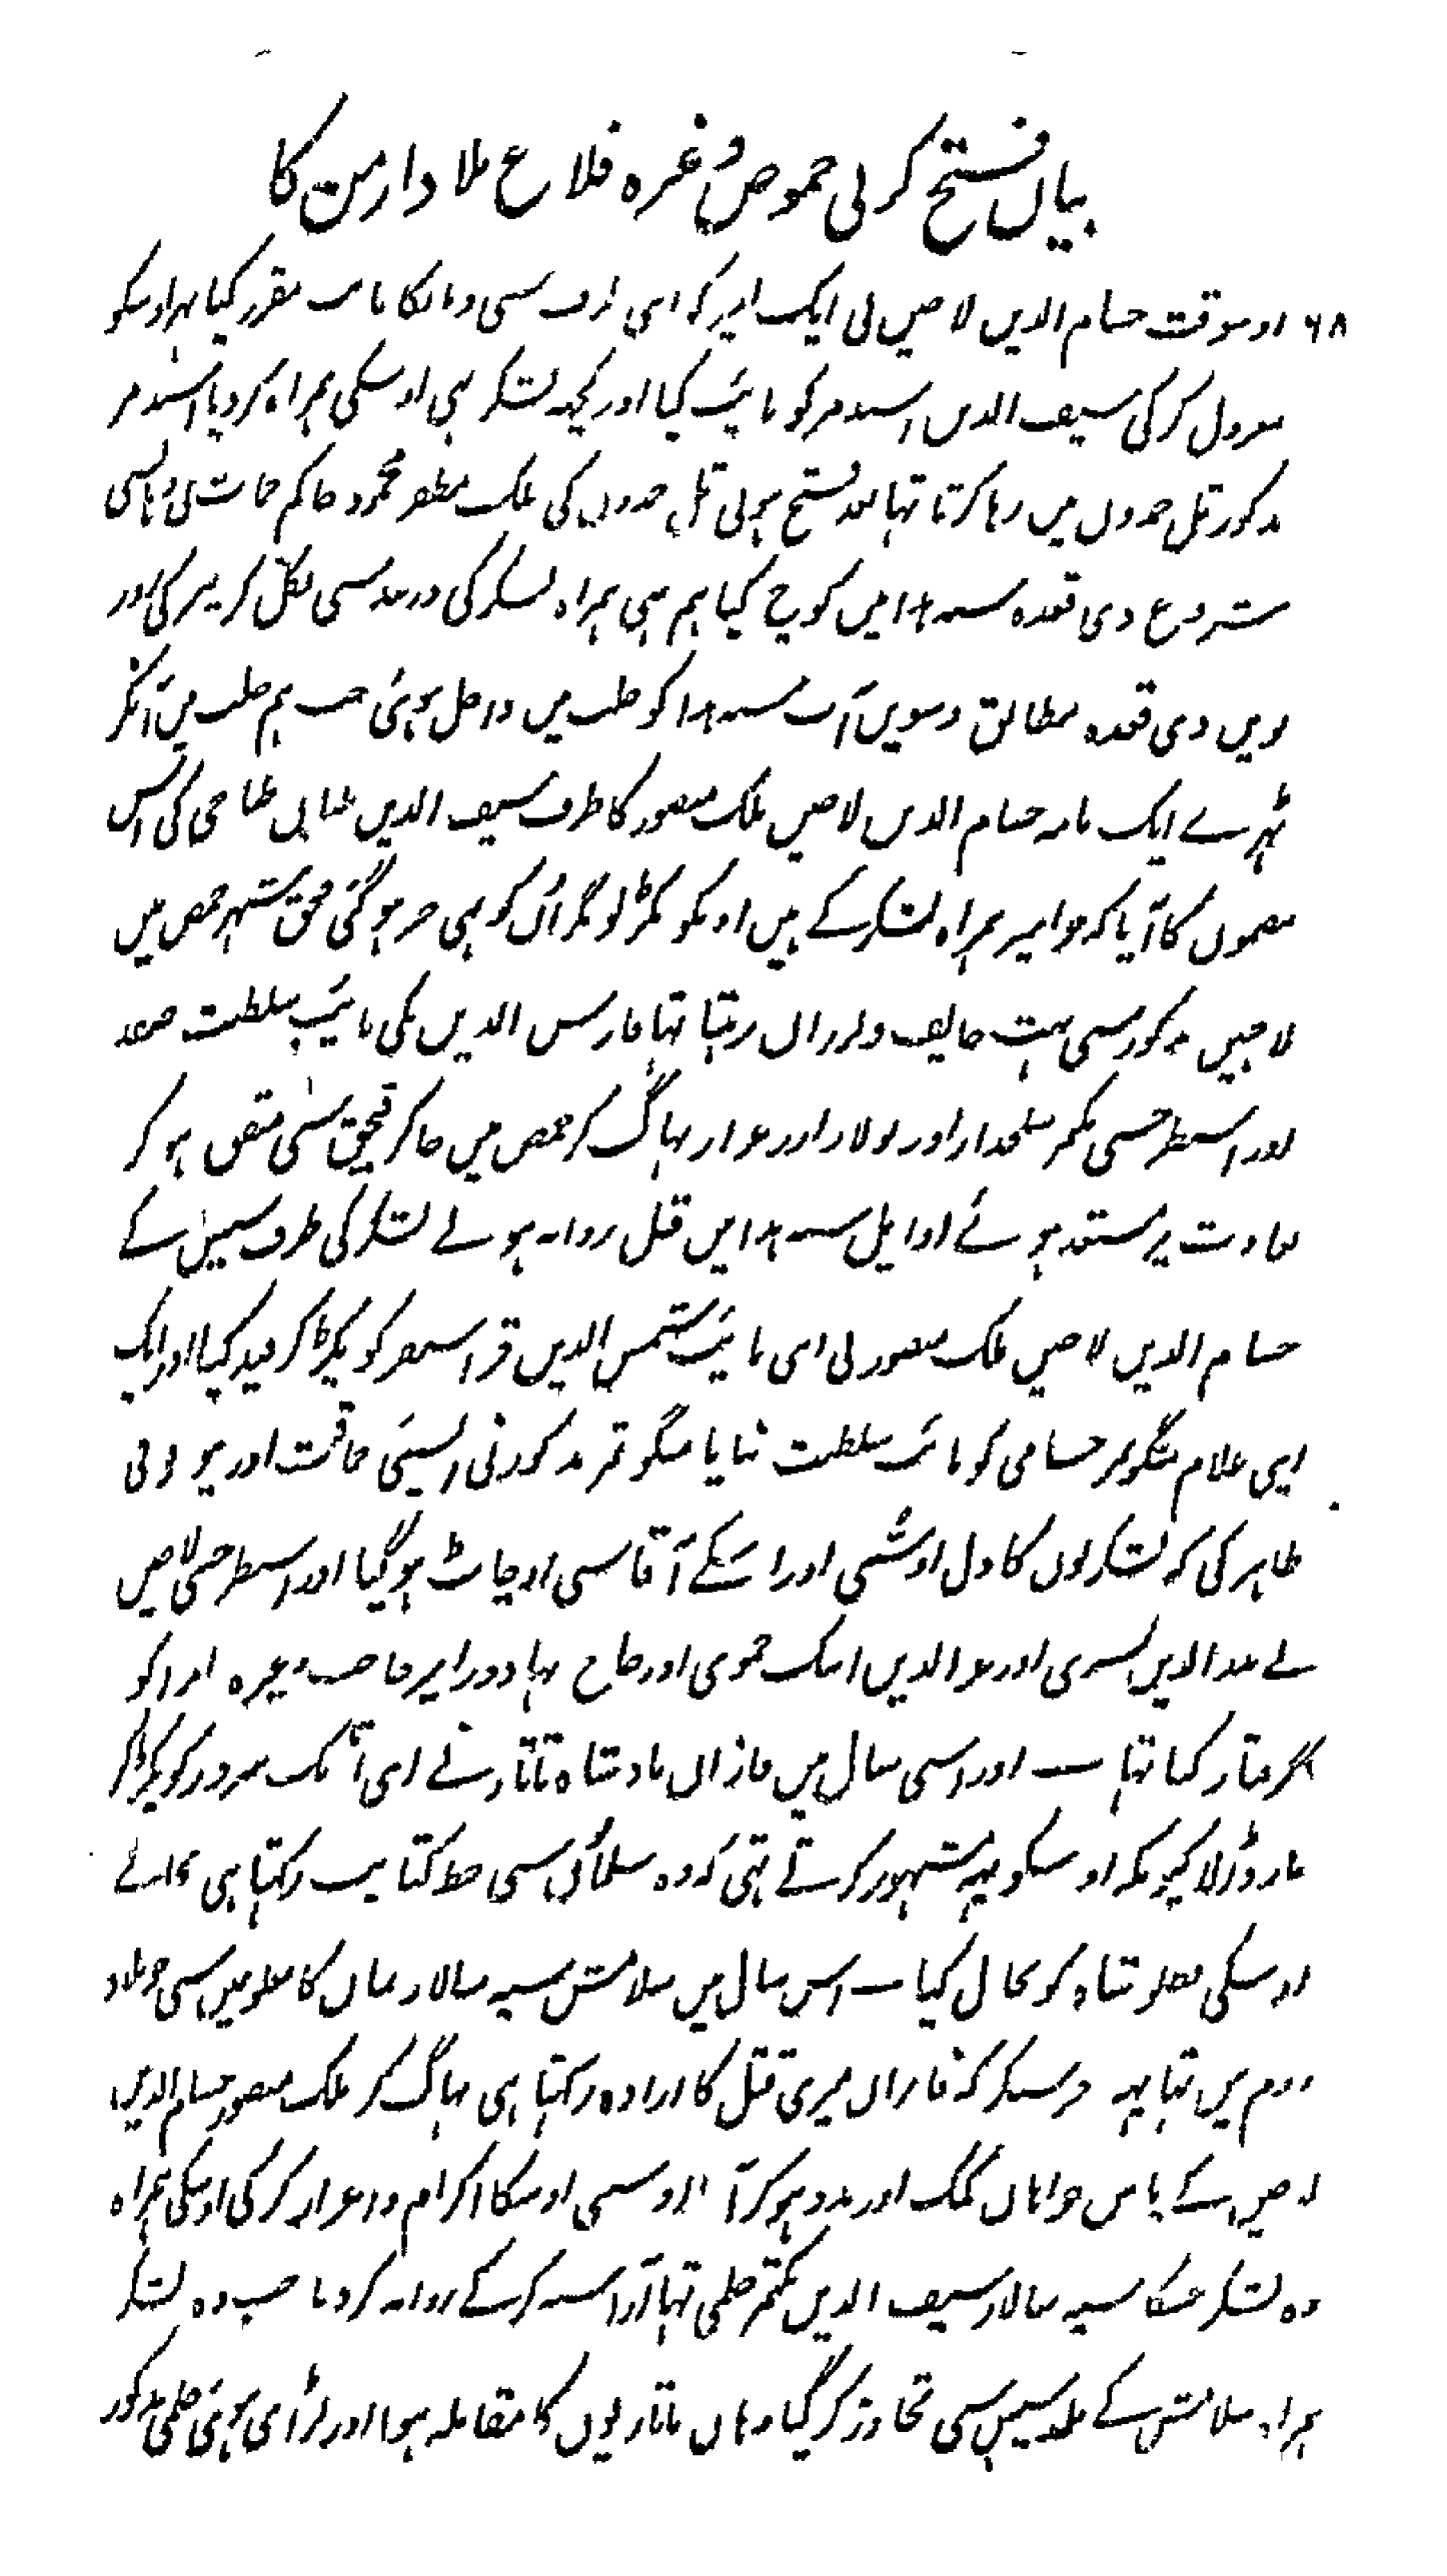 بیان فتح کرنی حموص وغیرہ قلاع بلاد ارمن کا
۶۸ اوسوقت حسام الدین لاچین نی ایک امیر کو اپنی طرف سی وہانکا نایب مقرر کیا پہر اوسکو
معزول کرکی سیف الدین اسندمر کو نایٔب کیا اور کچہہ لشکر بہی اوسکی ہمراہ کردیا اسندمر
مذکور تل حمدون میں رہا کرتا تہا بعد فتح ہونی تل حمدون کی ملک مظفر محمود حاکم حمات نی وہانسی
شروع ذی قعدہ سنہ میں کوچ کیا ہم بہی ہمراہ لشکر کی دربند سی نکل کر کی اور
نویں ذی قعدہ مطابق دسویں آب سنہ کو حلب میں داخل ہوئی جب ہم حلب میں آنکر
ٹہرے ایک نامہ حسام الدین لاچین ملک منصور کا طرف سیف الدین طباخی کی اس
مضمون کا آیا کہ جو امیر ہمراہ لشکر کے ہیں اونکو پکڑ لو مگر اُن کو بہی خبر ہوگئی قبجق شہر حمص میں
لاچین مذکور سی بہت خایف ولرزاں رہتا تہا فارس الدین بکی نایٔب سلطنت صفد
اور اسیطرحسی بکتمر سلحدار اور بولار اور عزاز بہاگ کر حمص میں جاکر قبجق سی متفق ہو کر
بغاوت پر مستعد ہوئے اوایل سنہ میں قبل روانہ ہونے لشکر کی طرف سیس کے
حسام الدین لاچین ملک منصور نی اپنی نایٔب شمس الدین قراسنقر کو پکڑا کر قید کیا اور ایک
اپنی غلام منگوتمر حسامی کو نایٔب سلطنت بنایا منگوتمر مذکور نی ایسی حماقت اور بیوقوفی
ظاہر کی کہ لشکریوں کا دل اوسسی اور اسکے آقا سی اوچاٹ ہوگیا اور اسیطرحسی لاچین
نے بدرالدین بیسری اور عزالدین ایبک حموی اور حاج بہادر اور امیر حاجب وغیرہ امرا کو
گرفتار کیا تہا ــ اور اسی سال میں غازان بادشاہ تاتار نے اپنی اتابک نیروز کو پکڑ کر
مار ڈالا کیونکہ اوسکو یہہ مشہور کرتے تہی کہ وہ مسلمانوں سی خط کتابت رکہتا ہی بجاے
اوسکی قطلوشاہ کو بحال کیا ــ اس سال میں سلامش سپہ سالار مغلوں کا جو بلاد
روم میں تہا یہہ خبر سنکر کہ غازان میری قتل کا ارادہ رکہتا ہی بہاگ کر ملک منصور حسام الدین
لاچین کے پاس خواہاں کمک اور مدد ہو کر آیا اوسسی اوسکا اکرام و اعزاز کرکی اوسکی ہمراہ
وہ لشکر جسکا سپہ سالار سیف الدین بکتمر حلبی تہا آراستہ کرکے روانہ کردیا جب وہ لشکر
ہمراہ سلامش کے بلاد سیس سی تجاوز کرگیا وہاں تاتاریوں کا مقابلہ ہوا اور لڑائی ہوئی حلبی مذکور